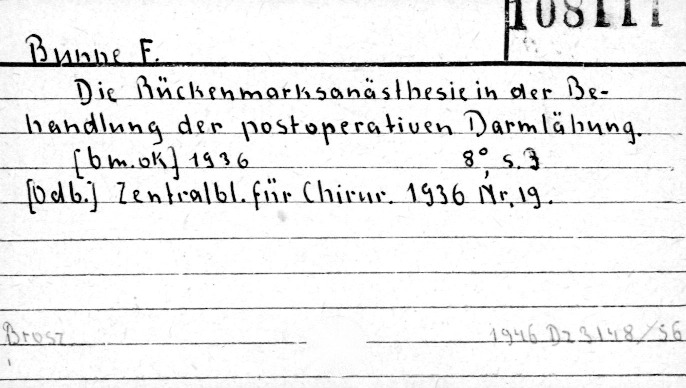 108111
Bunne F.
Die Rückenmarksanästhesie in der Be-
handlung der postoperativen Darmlähung.
[bm. ok] 1936 8°, s. 3
[Odb.] Zentralbl. für Chirur. 1936 Nr. 19.
Brosz. 1946 Dz 3148/56